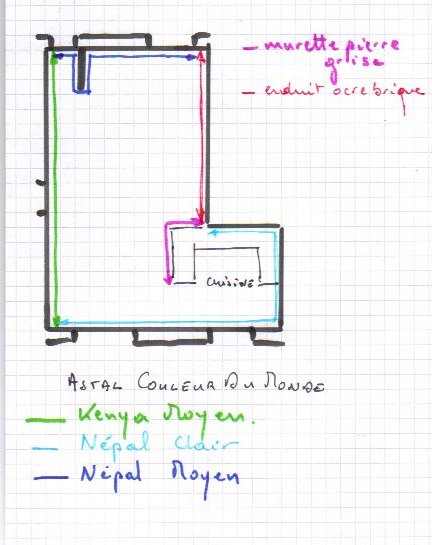 - murette pierre
grise
- enduit ocre brique
CUISINE
ASTAL COULEUR DU MONDE
Kenya Moyen.
Népal Clair
Népal Moyen